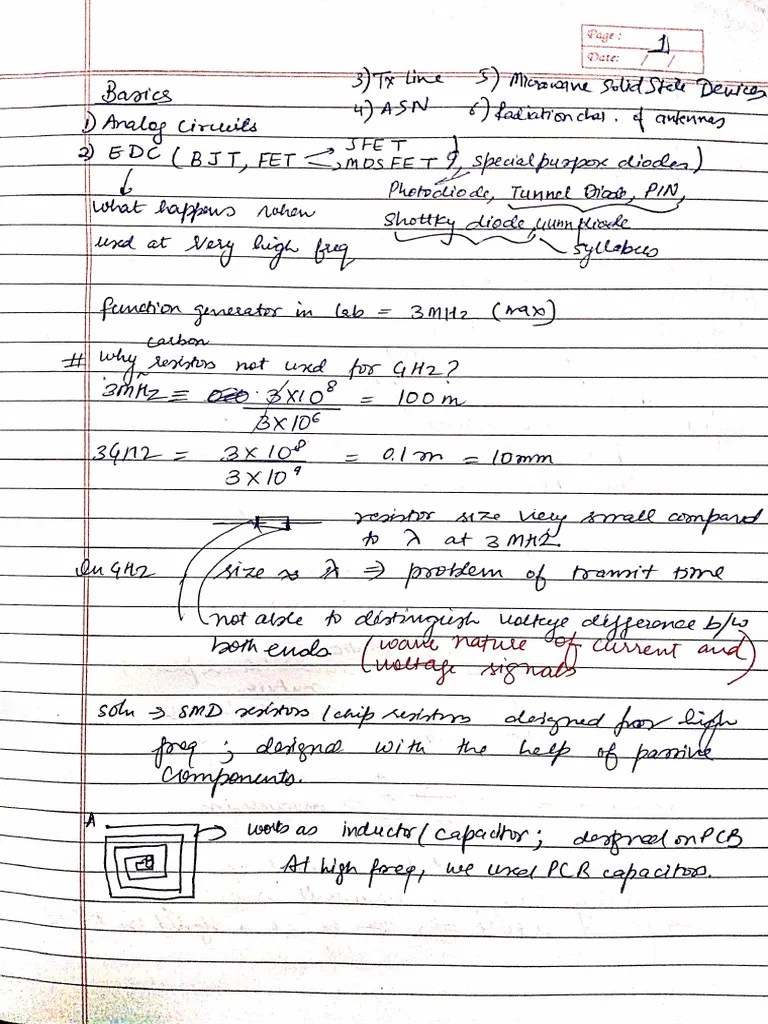 Page: 1
Date: / /
Basics
3) Tx Line 5) Microwave Solid State Devices
1) Analog Circuits 4) ASN 6) Radiation char. of antennas
2) EDC (BJT, FET → JFET, MOSFET), special purpose diodes)
Photodiode, Tunnel Diode, PIN,
what happens when Shottky diode, Gunn diode
used at very high freq syllabus
function generator in lab = 3MHz (max)
# Why carbon resistors not used for GHz?
3MHz ≡ 3×10⁸ / 3×10⁶ = 100 m
3GHz = 3×10⁸ / 3×10⁹ = 0.1m = 10mm
resistor size very small compared
to λ at 3 MHz.
In GHz size ≈ λ ⇒ problem of transit time
not able to distinguish voltage difference b/w
both ends. (wave nature of current and)
(voltage signals
soln ⇒ SMD resistors / chip resistors designed for high
freq ; designed with the help of passive
components.
A → works as inductor / capacitor ; designed on PCB
B At high freq, we used PCB capacitors.